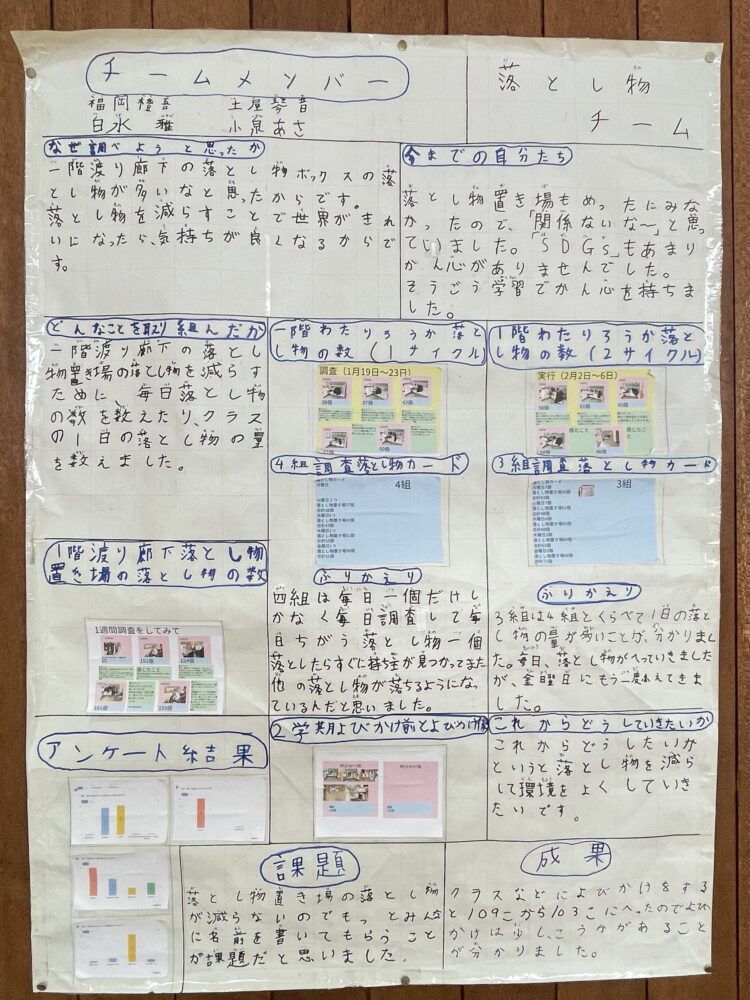 チームメンバー
福岡橙吾 土屋琴音
白水 雅 小泉あさ
落とし物
チーム
なぜ調べようと思ったか
一階渡り廊下の落とし物ボックスの落
とし物が多いなと思ったからです。
落とし物を減らすことで世界がきれ
いになったら、気持ちが良くなるからで
す。
今までの自分たち
落とし物置き場もめったにみな
かったので、「関係ないな〜」と思っ
ていました。「SDGs」もあまり
かん心がありませんでした。
そうごう学習でかん心を持ちま
した。
どんなことを取り組んだか
一階渡り廊下の落とし
物置き場の落とし物を減らす
ために 毎日落とし物
の数を数えたり、クラス
の1日の落とし物の量
を数えました。
一階わたりろうか落と
し物の数(1サイクル)
調査(1月19日〜23日)
1階わたりろうか落と
し物の数(2サイクル)
実行(2月2日〜6日)
4組調査落とし物カード
4組
3組調査落とし物カード
3組
1階渡り廊下落とし物
置き場の落とし物の数
1週間調査をしてみて
151個 154個
感じたこと
161個 155個
ふりかえり
四組は毎日一個だけし
かなく毎日調査して毎
日ちがう落とし物一個
落としたらすぐに持ち主が見つかってまた
他の落とし物が落ちるようになっ
ているんだと思いました。
ふりかえり
3組は4組とくらべて1日の落と
し物の量が多いことが、分かりまし
た。毎日、落とし物がへっていきました
が、金曜日にもう一度ふえてきま
した。
アンケート結果
2学期よびかけ前とよびかけ後
呼びかけ前 呼びかけ後
これからどうしていきたいか
これからどうしたいか
というと落とし物を減ら
して環境をよくしていき
たいです。
課題
落とし物置き場の落とし物
が減らないのでもっとみんな
に名前を書いてもらうこと
が課題だと思いました。
成果
クラスなどによびかけをする
と109こから103こにへったのでよび
かけは少し、こうかがあること
が分かりました。